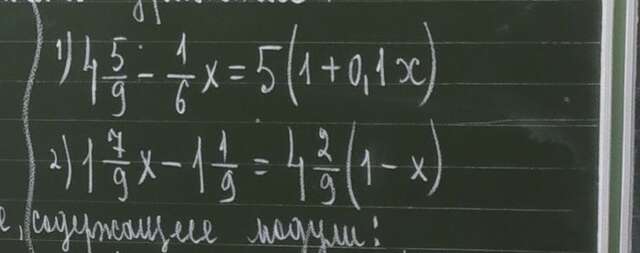 1) 4 5/9 - 1/6 x = 5(1 + 0,1x)
2) 1 7/9 x - 1 1/9 = 4 2/9 (1 - x)
содержащее модули: